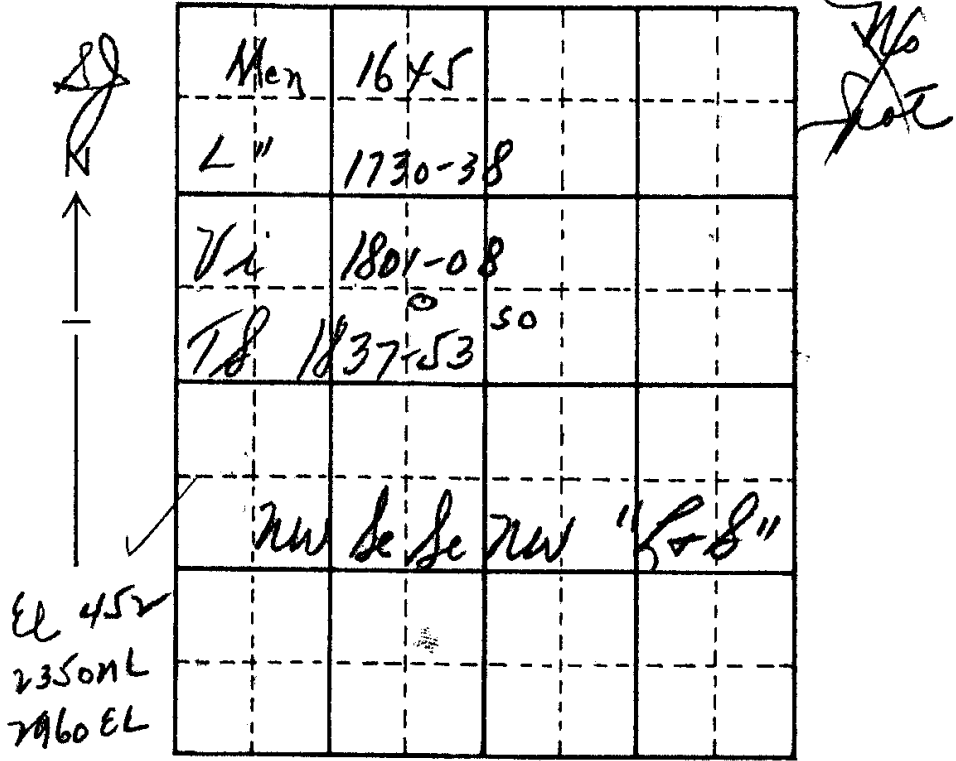 No
Spot
N
Men 1645
L " 1730-38
Vi 1801-08
TS 1837-53 50
NW Se Se NW "R+S"
El 452
2350NL
2960 EL